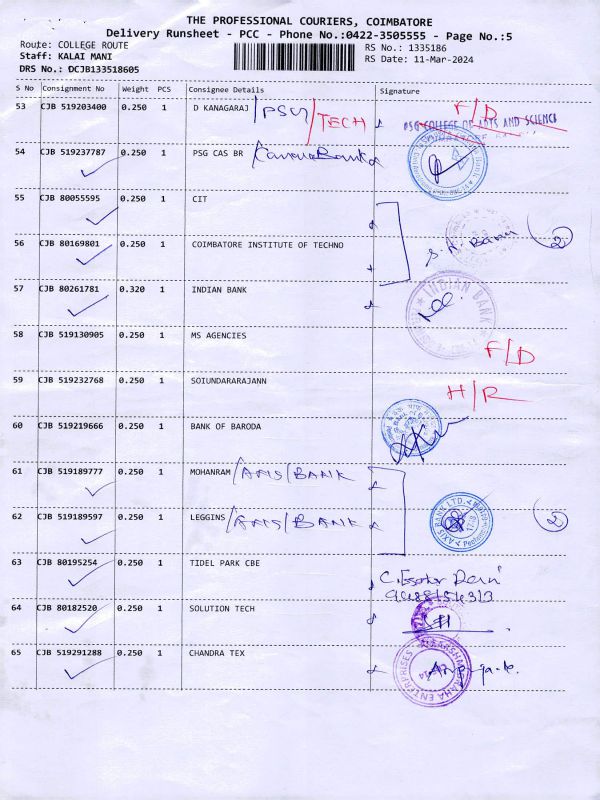 THE PROFESSIONAL COURIERS, COIMBATORE
Delivery Runsheet - PCC - Phone No.:0422-3505555 - Page No.:5
Route: COLLEGE ROUTE RS No.: 1335186
Staff: KALAI MANI RS Date: 11-Mar-2024
DRS No.: DCJB133518605
S No Consignment No Weight PCS Consignee Details Signature
53 CJB 519203400 0.250 1 D KANAGARAJ /PSG/TECH F/D
PSG COLLEGE OF ARTS AND SCIENCE
54 CJB 519237787 0.250 1 PSG CAS BR /Canara Bank
55 CJB 80055595 0.250 1 CIT
56 CJB 80169801 0.250 1 COIMBATORE INSTITUTE OF TECHNO 2
57 CJB 80261781 0.320 1 INDIAN BANK
INDIAN BANK
58 CJB 519130905 0.250 1 MS AGENCIES F/D
59 CJB 519232768 0.250 1 SOIUNDARARAJANN H/R
60 CJB 519219666 0.250 1 BANK OF BARODA
61 CJB 519189777 0.250 1 MOHANRAM /AXIS/BANK
62 CJB 519189597 0.250 1 LEGGINS /AXIS/BANK AXIS BANK LTD. 2
63 CJB 80195254 0.250 1 TIDEL PARK CBE
64 CJB 80182520 0.250 1 SOLUTION TECH
65 CJB 519291288 0.250 1 CHANDRA TEX
ENTERPRISES